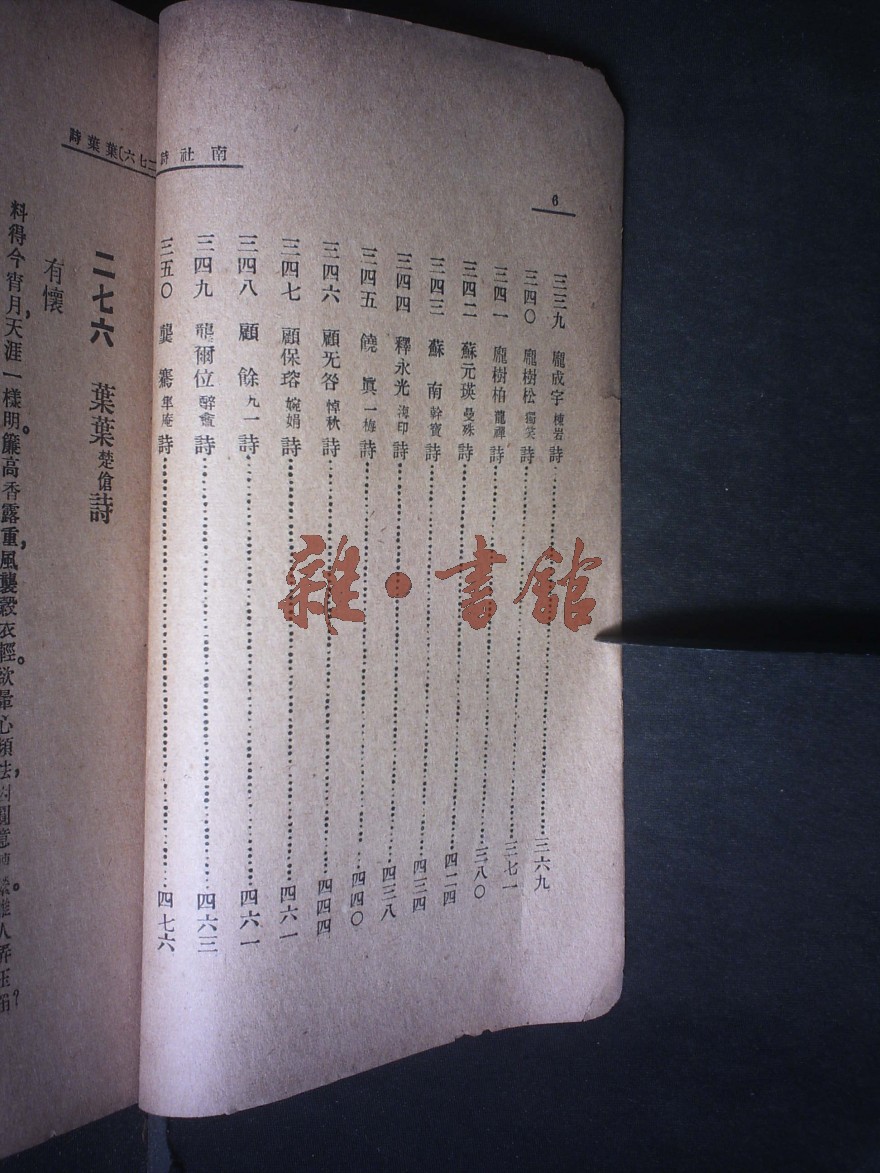 南社詩
6
三三九 龐成字 棟岩 詩 三六九
三四〇 龐樹松 獨笑 詩 三七一
三四一 龐樹柏 龍禪 詩 三八〇
三四二 蘇元瑛 曼殊 詩 四二四
三四三 蘇南 幹寶 詩 四三四
三四四 釋永光 海印 詩 四三八
三四五 饒眞 一梅 詩 四四〇
三四六 顧旡咎 悼秋 詩 四四四
三四七 顧保瑢 婉娟 詩 四六一
三四八 顧餘 九一 詩 四六一
三四九 龍爾位 詩 四六三
三五〇 龔騫 隼庵 詩 四七六
二七六〔葉葉詩
二七六 葉葉 楚傖 詩
有懷
料得今宵月，天涯一樣明。簾高香露重，風襲縠衣輕。欲暈心頻怯，圓意。人弄玉？
雜·書館